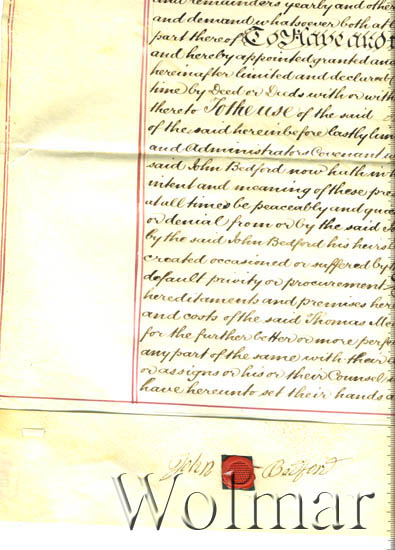 and remainders yearly and other
and demand whatsoever both at l
part thereof To Have and t
and hereby appointed granted and
hereinafter limited and declared
time by Deed or Deeds with or with
thereto To the use of the said
of the said hereinbefore lastly lim
and Administrators Covenant
said John Bedford now hath in h
intent and meaning of these pre
at all times be peaceably and qui
or denial from or by the said J
by the said John Bedford his heirs
created occasioned or suffered by
default privity or procurement
hereditaments and premises here
and costs of the said Thomas Me
for the further better or more perfe
any part of the same with their
or assigns or his or their Counsel
have hereunto set their hands a
John Bedford
Wolmar